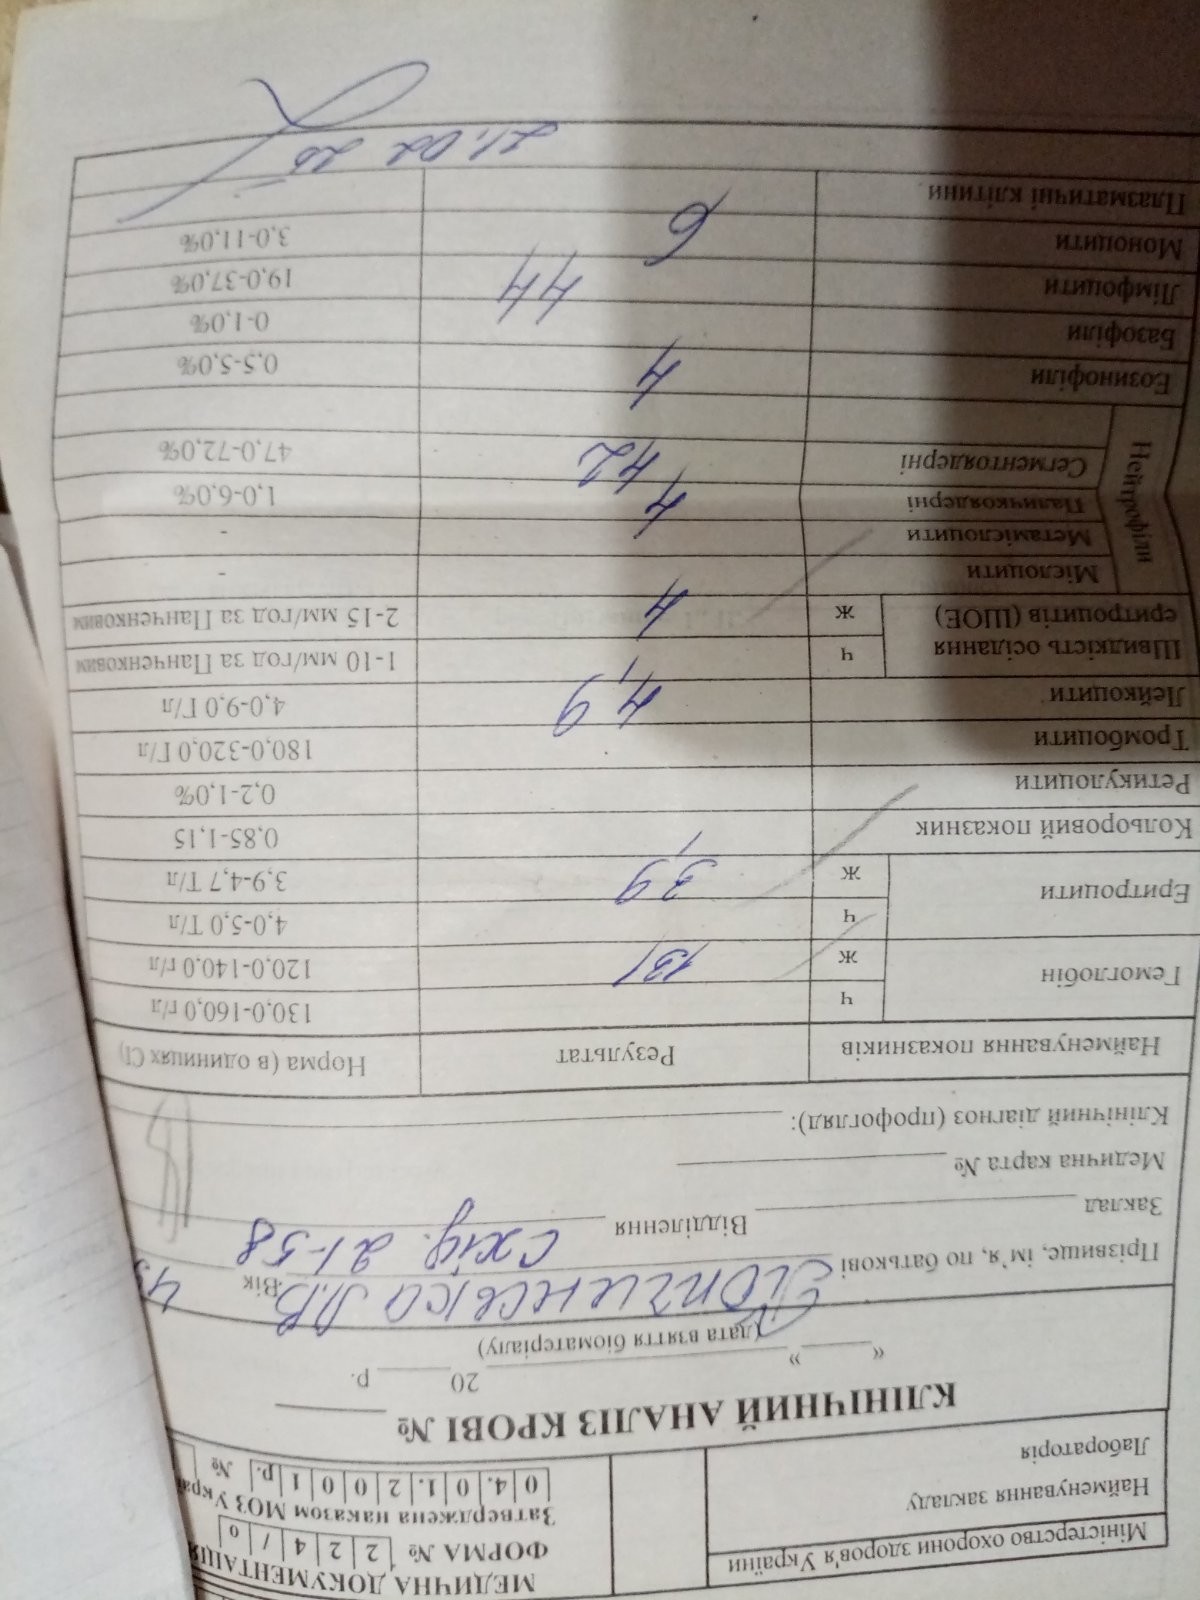 Міністерство охорони здоров'я України
Найменування закладу
Лабораторія
МЕДИЧНА ДОКУМЕНТАЦІЯ
ФОРМА № 2 2 4 / о
Затверджена наказом МОЗ Украї
0 4. 0 1. 2 0 0 1 р. №
КЛІНІЧНИЙ АНАЛІЗ КРОВІ №
« » 20 р.
(дата взяття біоматеріалу)
Прізвище, ім'я, по батькові Л.В Вік
Заклад Відділення схід. 21-58
Медична карта №
Клінічний діагноз (профогляд):
Найменування показників Результат Норма (в одиницях СІ)
Гемоглобін Ч 130,0-160,0 г/л
Ж 131 120,0-140,0 г/л
Еритроцити Ч 4,0-5,0 Т/л
Ж 3,9 3,9-4,7 Т/л
Кольоровий показник 0,85-1,15
Ретикулоцити 0,2-1,0%
Тромбоцити 180,0-320,0 Г/л
Лейкоцити 4,9 4,0-9,0 Г/л
Швидкість осідання еритроцитів (ШОЕ) Ч 1-10 мм/год за Панченковим
Ж 4 2-15 мм/год за Панченковим
Нейтрофіли Мієлоцити -
Метамієлоцити -
Паличкоядерні 4 1,0-6,0%
Сегментоядерні 42 47,0-72,0%
Еозинофіли 4 0,5-5,0%
Базофіли 0-1,0%
Лімфоцити 44 19,0-37,0%
Моноцити 6 3,0-11,0%
Плазматичні клітини -
21.02 25